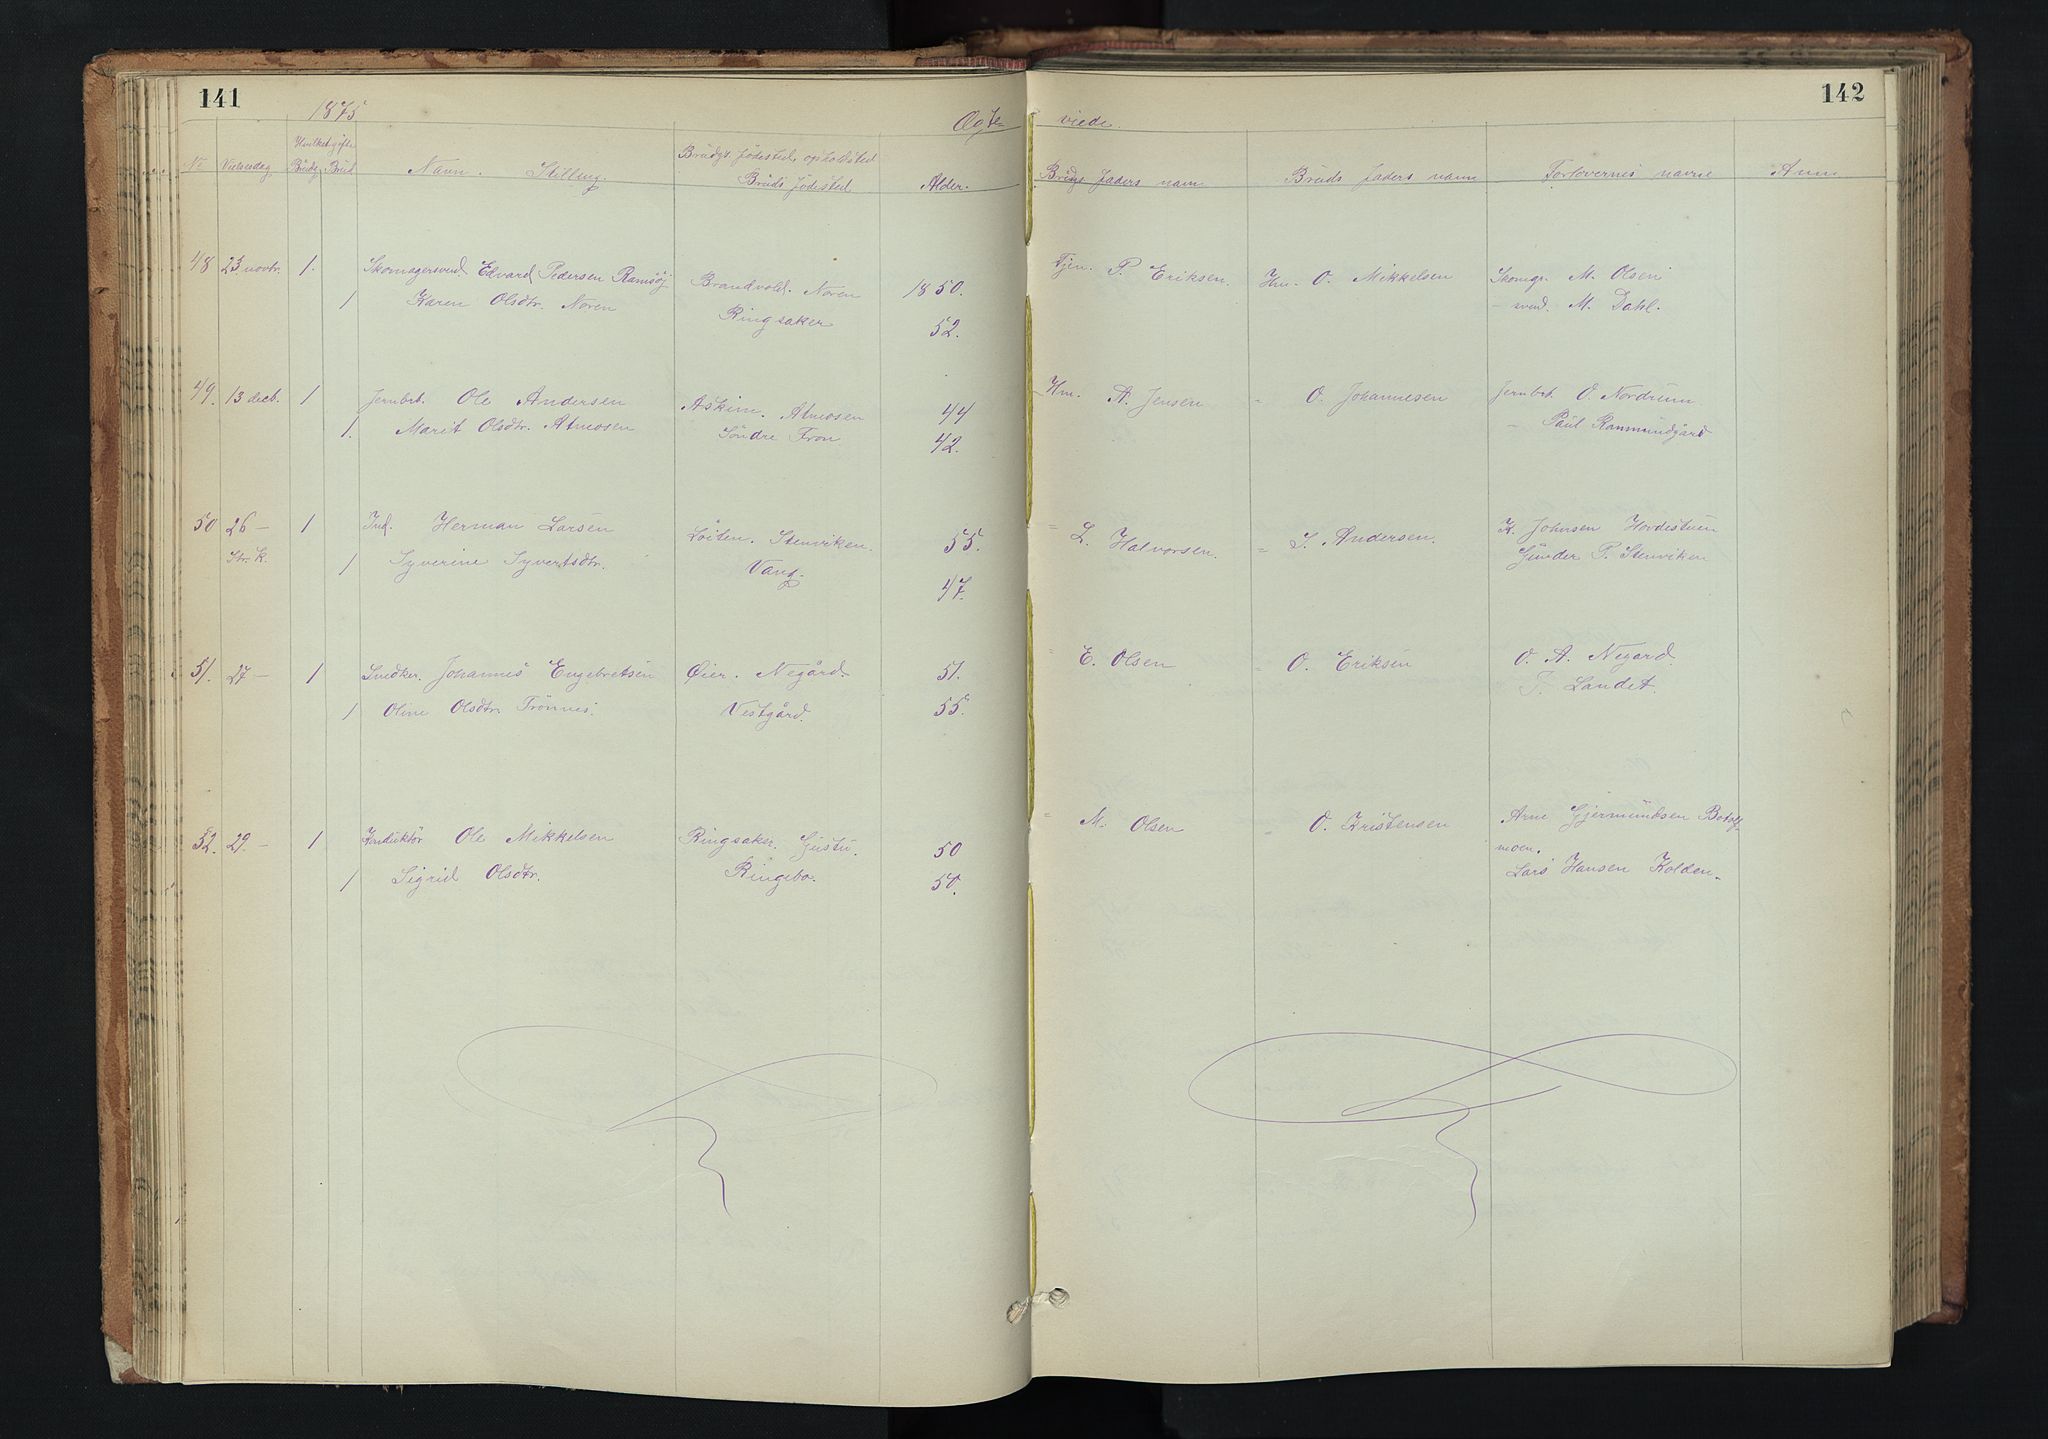 141
1875
Ægte-
viede.
142
No Vielsesdag Hvilket gifte
Brudg. Brud
Navn. Stilling.
Brudgs. fødested, opholdsted
Bruds fødested
Alder.
Brudgs faders navn
Bruds faders navn
Forlovernes navne
Anm
48 23 novbr. 1. Skomagersvend Edvard Pedersen Ramsöj Brandvold. Noren 1850. Tjen. P. Eriksen. Hm. O. Mikkelsen Skomgr. M. Olsen
1 Karen Olsdtr. Noren Ringsaker 52. – svend. M. Dahl.
49. 13 decb. 1 Jernbrt. Ole Andersen Askim. Atmosen 44 Hm. A. Jensen = O. Johannesen Jernbrt. O. Nordrum
1. Marit Olsdtr. Atmosen Söndre Fron 42. – Paul Ranmundgård
50 26 – 1 Ind. Herman Larsen Löiten. Stenviken. 55. = L. Halvorsen. = S. Andersen. K. Johnsen Hovdestuen
Str. k. 1 Syverine Syvertsdtr. Vang. 47. Gunder P. Stenviken
51. 27 – 1 Snedker. Johannes Engebretsen Øier. Negård. 51. = E. Olsen = O. Eriksen O. A. Negård.
1 Oline Olsdtr. Trönnes. Vestgård. 55. T. Landet.
52. 29. – 1 Konduktör Ole Mikkelsen Ringsaker. Gustu. 50 = M. Olsen = O. Kristensen Arne Gjermundsen Botolf-
moen.
1 Sigrid Olsdtr. Ringebo. 50. Lars Hansen Kolden.